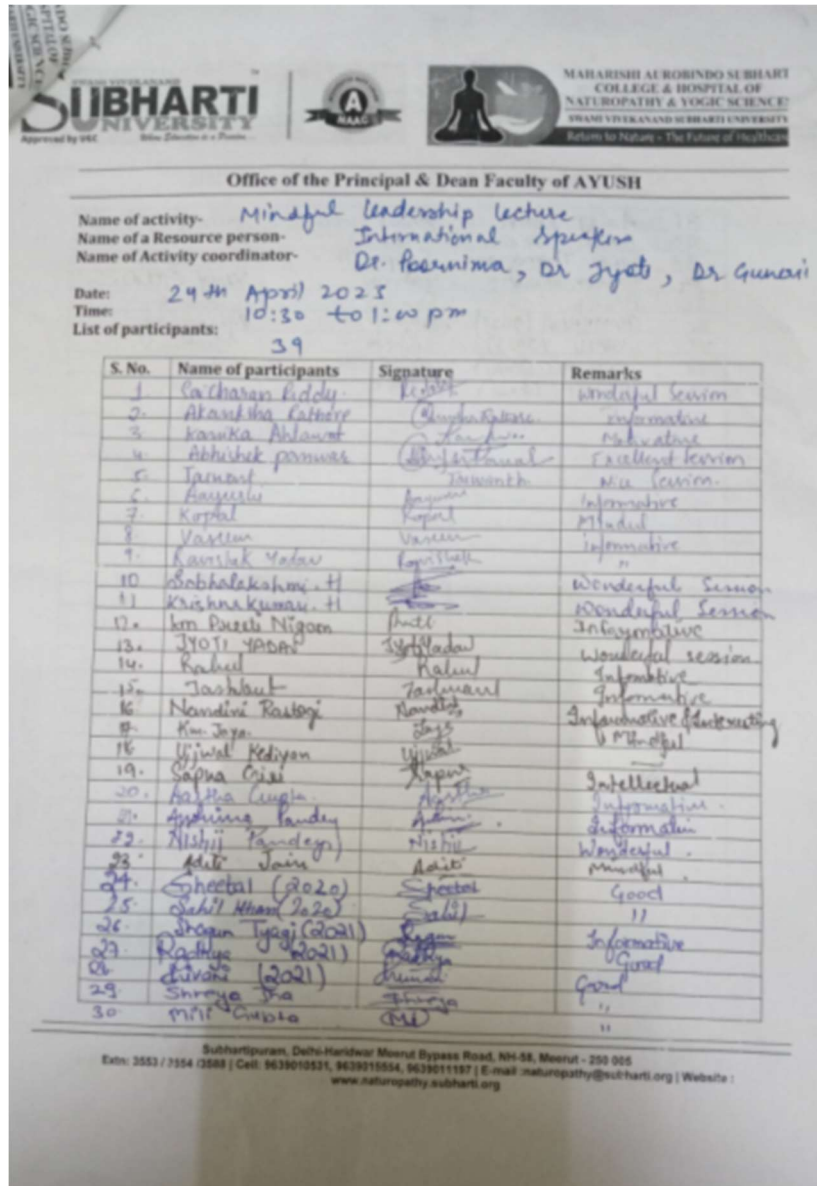 SWAMI VIVEKANAND
SUBHARTI
UNIVERSITY
Approved by UGC
Where Education is a Passion
NAAC
A
MAHARISHI AUROBINDO SUBHARTI
COLLEGE & HOSPITAL OF
NATUROPATHY & YOGIC SCIENCES
SWAMI VIVEKANAND SUBHARTI UNIVERSITY
Return to Nature - The Future of Healthcare
Office of the Principal & Dean Faculty of AYUSH
Name of activity- Mindful leadership lecture
Name of a Resource person- International Speakers
Name of Activity coordinator- Dr. Poornima, Dr Jyoti, Dr Gunjan
Date: 29th April 2023
Time: 10:30 to 1:00 pm
List of participants:
39
S. No. Name of participants Signature Remarks
1. Charan Reddy. Wonderful Session
2. Akanksha Rathore informative
3. Kanika Ahlawat
4. Abhishek panwar Excellent Session
5. Nice Session.
6. Aayushi Informative
7. Kopal Kopal Mindful
8. Vaseem Vaseem informative
9. Yadav "
10 Subhalakshmi. H Wonderful Session
11 Krishnakumar. H Wonderful Session
12. km Preeti Nigam Preeti Informative
13. JYOTI YADAV JyotiYadav Wonderful session
14. Rahul Rahul Informative
15. Jashwant Jashwant Informative
16 Nandini Rastogi Nandini Informative & Interesting
17 Km. Jaya. Jaya Mindful
18 Ujjwal Kediyan Ujjwal
19. Sapna Giri Sapna Intellectual
20. Aastha Gupta Aastha Informative.
21. Pandey
22. Nishi Pandey Nishi Wonderful.
23 Aditi Jain Aditi Mindful.
24. Sheetal (2020) Sheetal Good
25 Sahil Khan (2020) Sahil "
26 Shagun Tyagi (2021) Informative
27 Radhya (2021) Radhya Good
28 Shivani (2021) Shivani Good
29 Shreya Jha Shreya "
30. Mili Gupta Mili "
Subhartipuram, Delhi-Haridwar Meerut Bypass Road, NH-58, Meerut - 250 005
Extn: 3553 / 3554 /3588 | Cell: 9639010531, 9639015554, 9639011187 | E-mail :naturopathy@subharti.org | Website :
www.naturopathy.subharti.org